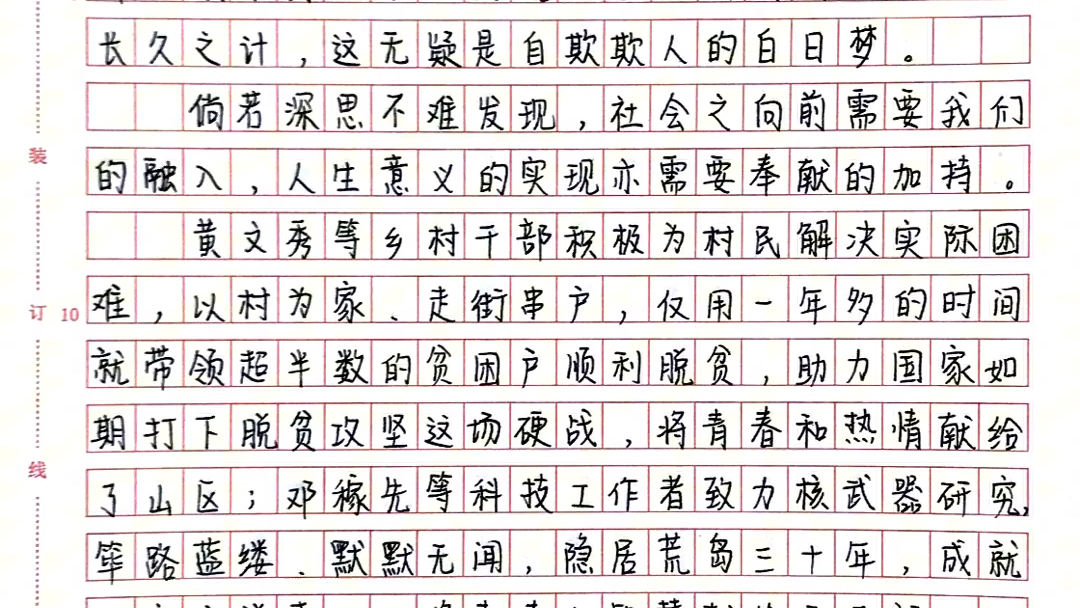 长久之计，这无疑是自欺欺人的白日梦。
倘若深思不难发现，社会之向前需要我们
装
的融入，人生意义的实现亦需要奉献的加持。
黄文秀等乡村干部积极为村民解决实际困
订 10 难，以村为家、走街串户，仅用一年多的时间
就带领超半数的贫困户顺利脱贫，助力国家如
期打下脱贫攻坚这场硬战，将青春和热情献给
线
了山区；邓稼先等科技工作者致力核武器研究，
筚路蓝缕、默默无闻，隐居荒岛三十年，成就